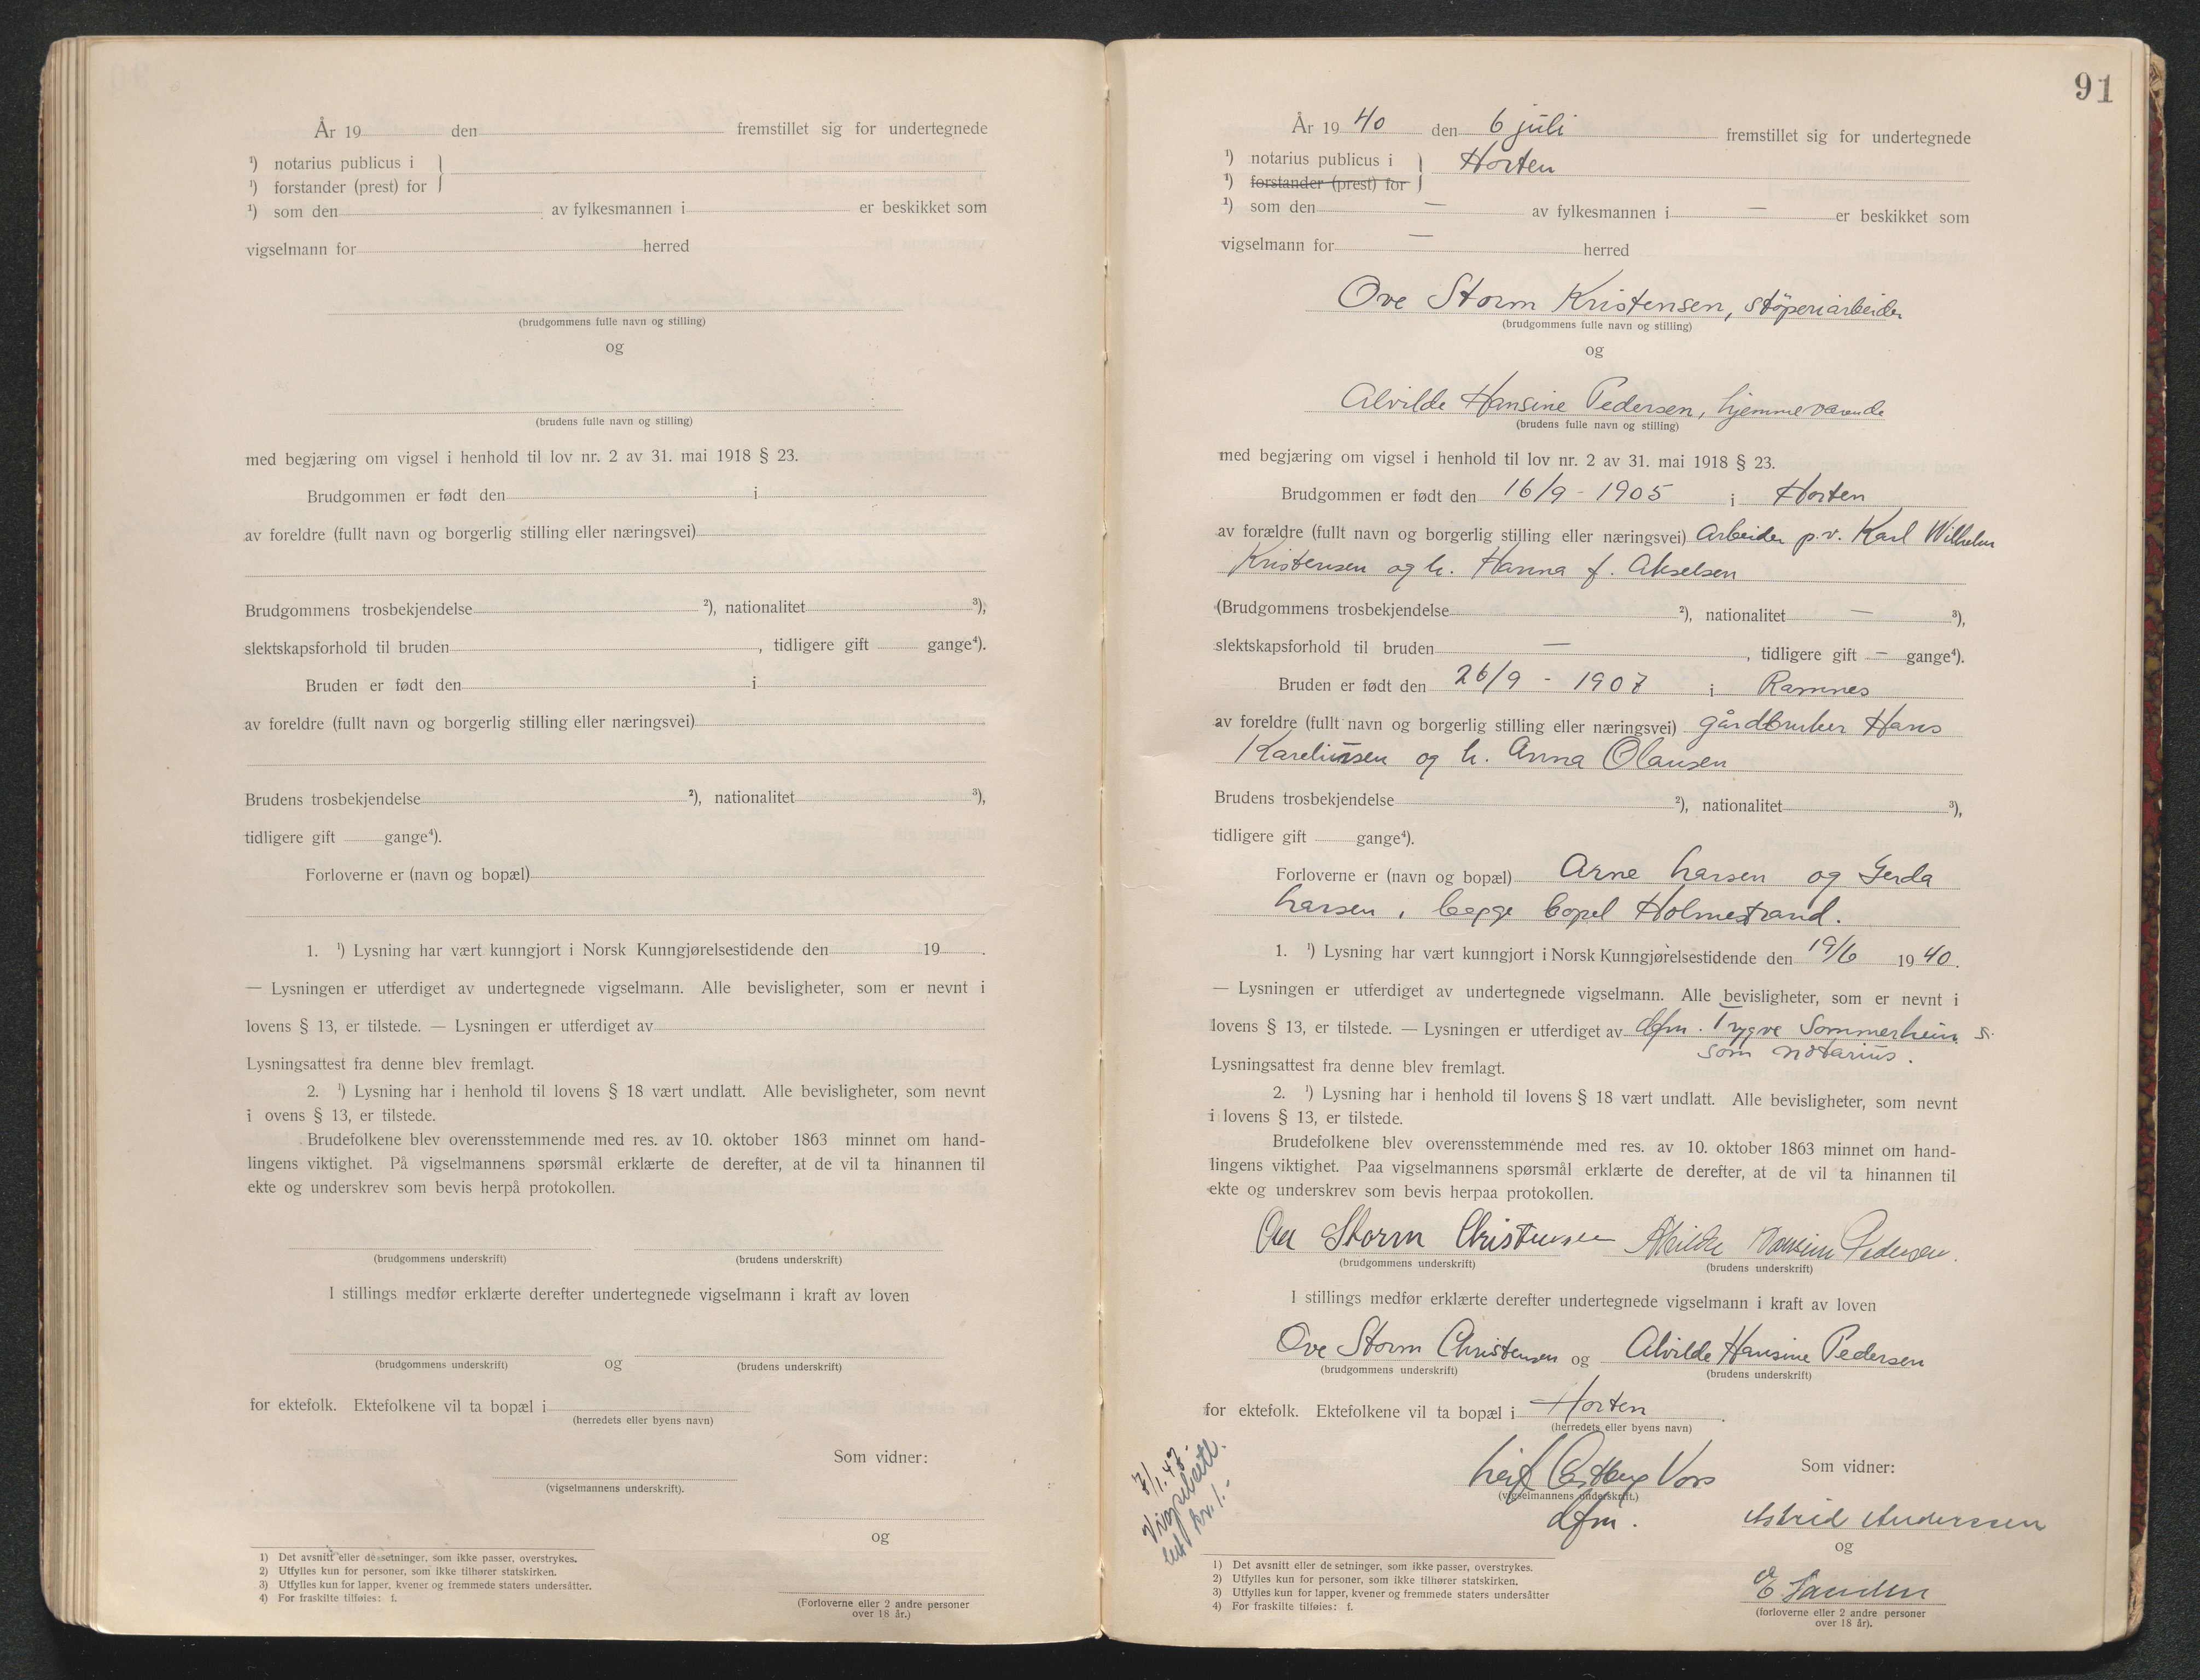 År 19 den fremstillet sig for undertegnede
¹) notarius publicus i }
¹) forstander (prest) for }
¹) som den av fylkesmannen i er beskikket som
vigselmann for herred
(brudgommens fulle navn og stilling)
og
(brudens fulle navn og stilling)
med begjæring om vigsel i henhold til lov nr. 2 av 31. mai 1918 § 23.
Brudgommen er født den i
av foreldre (fullt navn og borgerlig stilling eller næringsvei)
Brudgommens trosbekjendelse ²), nationalitet ³),
slektskapsforhold til bruden , tidligere gift gange⁴).
Bruden er født den i
av foreldre (fullt navn og borgerlig stilling eller næringsvei)
Brudens trosbekjendelse ²), nationalitet ³),
tidligere gift gange⁴).
Forloverne er (navn og bopæl)
1. ¹) Lysning har vært kunngjort i Norsk Kunngjørelsestidende den 19 .
— Lysningen er utferdiget av undertegnede vigselmann. Alle bevisligheter, som er nevnt i
lovens § 13, er tilstede. — Lysningen er utferdiget av
Lysningsattest fra denne blev fremlagt.
2. ¹) Lysning har i henhold til lovens § 18 vært undlatt. Alle bevisligheter, som nevnt
i ovens § 13, er tilstede.
Brudefolkene blev overensstemmende med res. av 10. oktober 1863 minnet om hand-
lingens viktighet. På vigselmannens spørsmål erklærte de derefter, at de vil ta hinannen til
ekte og underskrev som bevis herpå protokollen.
(brudgommens underskrift) (brudens underskrift)
I stillings medfør erklærte derefter undertegnede vigselmann i kraft av loven
og
(brudgommens underskrift) (brudens underskrift)
for ektefolk. Ektefolkene vil ta bopæl i
(herredets eller byens navn)
Som vidner:
(vigselmannens underskrift).
og
1) Det avsnitt eller de setninger, som ikke passer, overstrykes.
2) Utfylles kun for personer, som ikke tilhører statskirken.
3) Utfylles kun for lapper, kvener og fremmede staters undersåtter.
4) For fraskilte tilføies: f.
(Forloverne eller 2 andre personer
over 18 år.)
91
År 19 40 den 6 juli fremstillet sig for undertegnede
¹) notarius publicus i } Horten
¹) forstander (prest) for }
¹) som den — av fylkesmannen i — er beskikket som
vigselmann for — herred
Ove Storm Kristensen, støperiarbeider
(brudgommens fulle navn og stilling)
og
Alvilde Hansine Pedersen, hjemmeværende
(brudens fulle navn og stilling)
med begjæring om vigsel i henhold til lov nr. 2 av 31. mai 1918 § 23.
Brudgommen er født den 16/9 - 1905 i Horten
av forældre (fullt navn og borgerlig stilling eller næringsvei) Arbeider p.v. Karl Wilhelm
Kristensen og h. Hanna f. Akselsen
(Brudgommens trosbekjendelse ²), nationalitet — ³),
slektskapsforhold til bruden — , tidligere gift — gange⁴).
Bruden er født den 26/9 - 1907 i Ramnes
av foreldre (fullt navn og borgerlig stilling eller næringsvei) gårdbruker Hans
Kareliussen og h. Anna Olausen
Brudens trosbekjendelse ²), nationalitet ³),
tidligere gift gange⁴).
Forloverne er (navn og bopæl) Arne Larsen og Gerda
Larsen, begge bopel Holmestrand.
1. ¹) Lysning har vært kunngjort i Norsk Kunngjørelsestidende den 19/6 19 40.
— Lysningen er utferdiget av undertegnede vigselmann. Alle bevisligheter, som er nevnt i
lovens § 13, er tilstede. — Lysningen er utferdiget av dfm. Trygve Sommerheim
som notarius.
Lysningsattest fra denne blev fremlagt.
2. ¹) Lysning har i henhold til lovens § 18 vært undlatt. Alle bevisligheter, som nevnt
i lovens § 13, er tilstede.
Brudefolkene blev overensstemmende med res. av 10. oktober 1863 minnet om hand-
lingens viktighet. Paa vigselmannens spørsmål erklærte de derefter, at de vil ta hinannen til
ekte og underskrev som bevis herpaa protokollen.
Ove Storm Christensen Alvilde Hansine Pedersen.
(brudgommens underskrift) (brudens underskrift)
I stillings medfør erklærte derefter undertegnede vigselmann i kraft av loven
Ove Storm Christensen og Alvilde Hansine Pedersen
(brudgommens underskrift) (brudens underskrift)
for ektefolk. Ektefolkene vil ta bopæl i Horten.
(herredets eller byens navn)
7/1.47.
Vigselsatt.
kr. 1.-
Leif Voss
(vigselmannens underskrift.)
dfm.
Som vidner:
Astrid Anderssen
og
E Sanden
(forloverne eller 2 andre personer
over 18 år).
1) Det avsnitt eller de setninger, som ikke passer, overstrykes.
2) Utfylles kun for personer, som ikke tilhører statskirken.
3) Utfylles kun for lapper, kvener og fremmede staters undersåtter
4) For fraskilte tilføies: f.